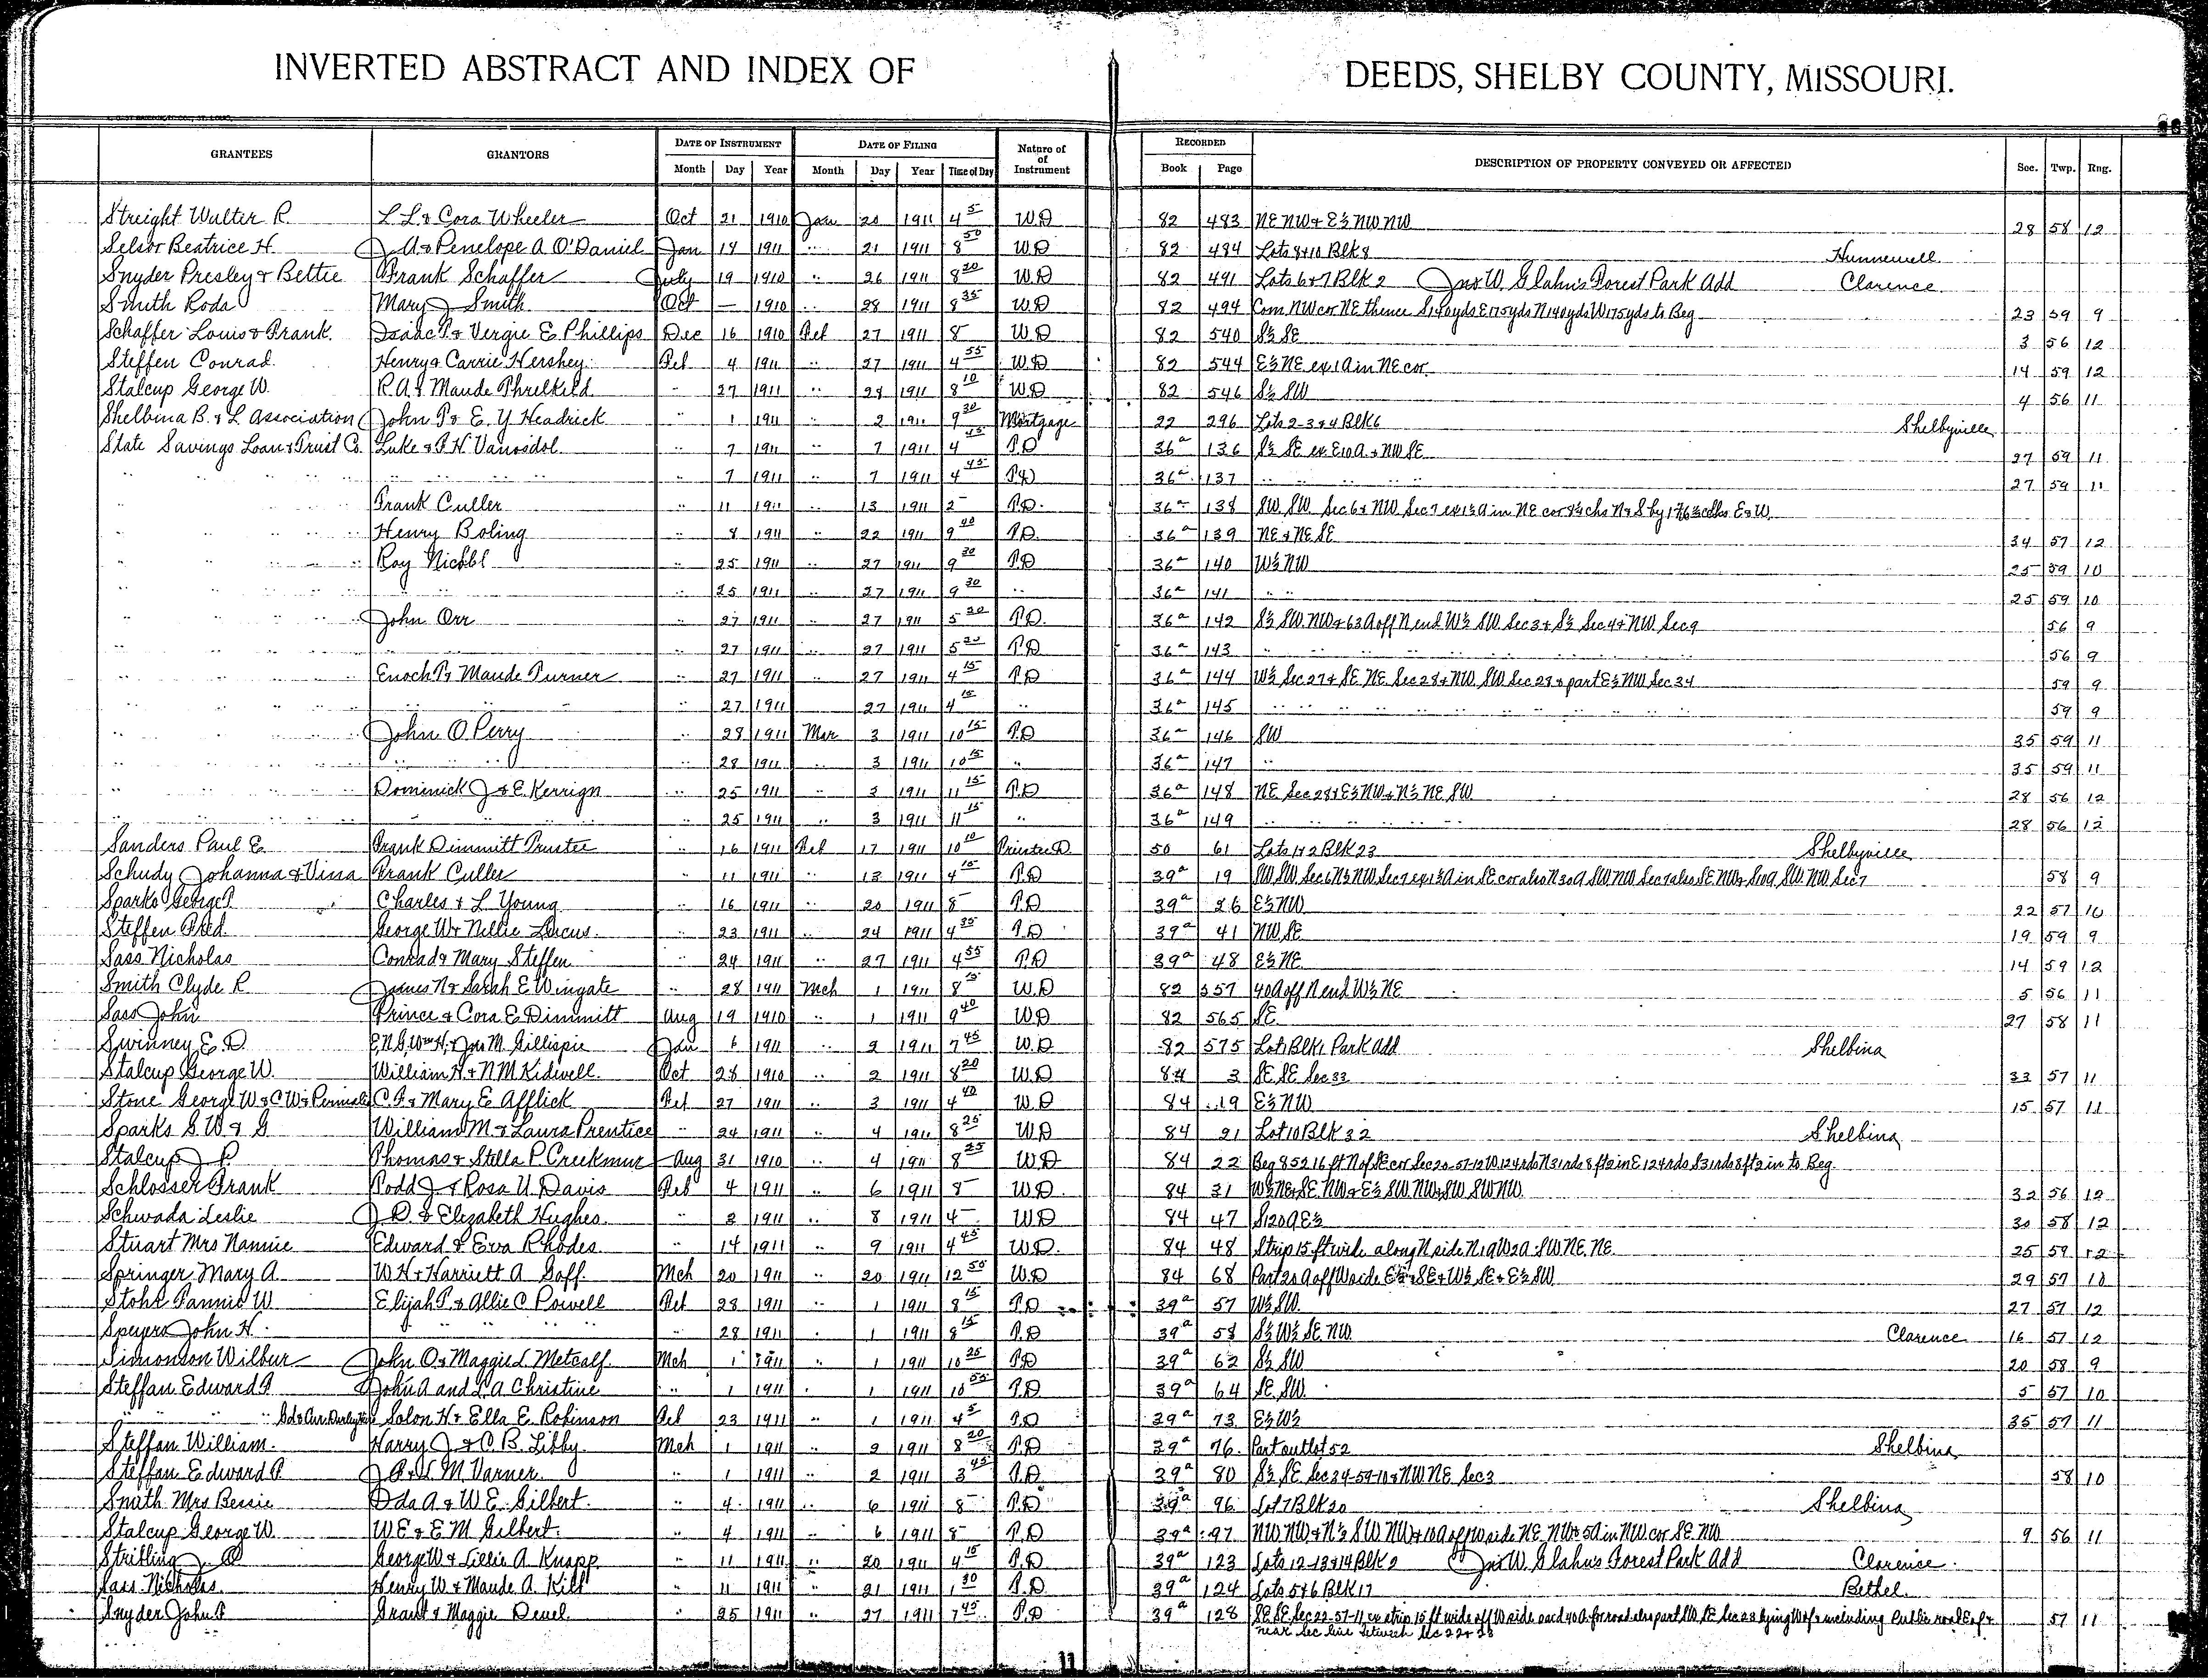 INVERTED ABSTRACT AND INDEX OF DEEDS, SHELBY COUNTY, MISSOURI.
GRANTEES GRANTORS DATE OF INSTRUMENT DATE OF FILING Nature of of Instrument RECORDED DESCRIPTION OF PROPERTY CONVEYED OR AFFECTED Sec. Twp. Rng.
Month Day Year Month Day Year Time of Day Book Page
Streight Walter R. L.L. & Cora Wheeler Oct 21 1910 Jan 20 1911 4 5 W.D 82 483 NE NW & E½ NW NW 28 58 12
Selsor Beatrice H. J.A. & Penelope A O'Daniel Jan 18 1911 " 21 1911 8 50 W.D 82 484 Lots 8+10 Blk 8 Hunnewell
Snyder Presley & Bettie Frank Schaffer July 19 1910 " 26 1911 8 20 W.D 82 491 Lots 6+7 Blk 2 Jno W. Glahn's Forest Park Add Clarence
Smith Roda Mary J Smith Oct — 1910 " 28 1911 8 35 W.D 82 494 Com NW cor NE thence S140yds E175yds N140yds W175yds to Beg 23 59 9
Schaffer Louis & Frank. Isaac T. & Vergie E Phillips Dec 16 1910 Feb 27 1911 8 W.D 82 540 S½ SE 3 56 12
Steffen Conrad Henry & Carrie Hershey Feb 4 1911 " 27 1911 4 55 W.D 82 544 E½ NE ex 1A in NE cor 14 59 12
Stalcup George W. R.A. & Maude Threlkeld " 27 1911 " 28 1911 8 10 W.D 82 546 S½ SW 4 56 11
Shelbina B. & L Association John T & E. Y Headrick " 1 1911 " 2 1911 9 30 Mortgage 22 296 Lots 2-3+4 Blk 6 Shelbyville
State Savings Loan & Trust Co. Luke & F.H. Vanosdol " 7 1911 " 7 1911 4 45 T.D 36a 136 S½ SE ex E10A. & NW SE 27 59 11
" " " " 7 1911 7 1911 4 45 T.D 36a 137 " " " 27 59 11
" " " Frank Culler " 11 1911 13 1911 2 T.D. 36a 138 SW SW Sec 6 & NW Sec 7 ex 1½ A in NE cor
" " " Henry Boling " 8 1911 " 22 1911 9 40 T.D. 36a 139 NE & NE SE 34 57 12
" " " Roy Nichol " 25 1911 " 27 1911 9 30 T.D 36a 140 W½ NW 25 59 10
" " " " 25 1911 " 27 1911 9 30 " 36a 141 " " 25 59 10
" " " John Orr " 27 1911 " 27 1911 5 20 T.D. 36a 142 S½ SW NW & 63A off N end W½ SW Sec 3 & S½ Sec 4 & NW Sec 9 56 9
" " " " 27 1911 " 27 1911 5 20 T.D 36a 143 " " " 56 9
" " " Enoch T & Maude Turner " 27 1911 " 27 1911 4 15 T.D 36a 144 W½ Sec 27 & SE NE Sec 28 & NW SW Sec 28 & part E½ NW Sec 34 59 9
" " " " 27 1911 27 1911 4 15 " 36a 145 " " " 59 9
" " " John O Perry " 28 1911 Mar 3 1911 10 15 T.D 36a 146 SW 35 59 11
" " " " 28 1911 " 3 1911 10 15 " 36a 147 " 35 59 11
" " " Dominick J & E. Kerrign " 25 1911 " 3 1911 11 15 T.D 36a 148 NE Sec 28 & E½ NW & N½ NE SW 28 56 12
" " " " 25 1911 " 3 1911 11 15 " 36a 149 " " " 28 56 12
Sanders Paul E Frank Dimmitt Trustee " 16 1911 Feb 17 1911 10 10 Trustee D 50 61 Lots 1+2 Blk 23 Shelbyville
Schudy Johanna & Vina Frank Culler " 11 1911 " 13 1911 4 15 T.D 39a 19 SW SW Sec 6 N½ NW Sec 7 ex 1½ A in SE cor also N30A SW NW Sec 7 also SE NW & S10A SW NW Sec 7 58 9
Sparks George T Charles & L Young " 16 1911 " 20 1911 8 T.D 39a 26 E½ NW 22 57 10
Steffen Fred George W & Nellie Lucus " 23 1911 " 24 1911 4 35 T.D 39a 41 NW SE 19 59 9
Sass Nicholas Conrad & Mary Steffen " 24 1911 " 27 1911 4 55 T.D 39a 48 E½ NE 14 59 12
Smith Clyde R James N & Sarah E Wingate " 28 1911 Mch 1 1911 8 15 W.D 82 557 40A off N end W½ NE 5 56 11
Sass John Prince & Cora E Dimmitt Aug 19 1910 " 1 1911 9 40 W.D 82 565 SE 27 58 11
Swinney E. D. E.N.G, Wm H, & Jas M. Gillispie Jan 6 1911 " 2 1911 7 45 W.D 82 575 Lot 1 Blk 1 Park Add Shelbina
Stalcup George W. William H. & N M Kidwell Oct 28 1910 " 2 1911 8 20 W.D 84 3 SE SE Sec 33 33 57 11
Stone George W & C W & Permelia C.F. & Mary E Afflick Feb 27 1911 " 3 1911 4 40 W D 84 19 E½ NW 15 57 11
Sparks G W & G William M. & Laura Prentice " 24 1911 " 4 1911 8 25 W.D 84 21 Lot 10 Blk 32 Shelbina
Stalcup J P Thomas & Stella P. Creekmur Aug 31 1910 " 4 1911 8 25 W.D 84 22 Beg 852 16 ft N of SE cor Sec 20-57-12 W 124rds N31rds 8ft 2in E 124rds S31rds 8ft 2in to Beg.
Schlosser Frank Todd J. & Rosa U. Davis Feb 4 1911 " 6 1911 8 W.D. 84 31 W½ NE & SE NW & E½ SW NW & SW SW NW 32 56 12
Schwada Leslie J. D. & Elizabeth Hughes " 3 1911 " 8 1911 4 W.D 84 47 S120A E½ 30 58 12
Stuart Mrs Nannie Edward & Eva Rhodes " 14 1911 " 9 1911 4 45 W.D. 84 48 Strip 15 ft wide along N side N1A W2A SW NE NE 25 59 12
Springer Mary A. W H & Harriett A Goff Mch 20 1911 " 20 1911 12 50 W.D 84 68 Part 20 A off W side E½ SE & W½ SE & E½ SW 29 57 10
Stohr Fannie W Elijah T. & Allie C Powell Feb 28 1911 " 1 1911 8 15 T.D 39a 57 W½ SW 27 57 12
Speyers John H. " " " 28 1911 " 1 1911 8 15 T.D 39a 58 S½ W½ SE NW Clarence 16 57 12
Simonson Wilbur John O & Maggie L Metcalf Mch 1 1911 " 1 1911 10 25 T.D 39a 62 S½ SW 20 58 9
Steffan Edward F John A and L. A Christine " 1 1911 " 1 1911 10 55 T.D 39a 64 SE SW 5 57 10
" " Solon H & Ella E Robinson Feb 23 1911 " 1 1911 4 5 T.D 39a 73 E½ W½ 35 57 11
Steffan William Harry J & C. B. Libby Mch 1 1911 " 2 1911 8 20 T.D 39a 76 Part outlot 52 Shelbina
Steffan Edward F. J A & L M Varner " 1 1911 " 2 1911 3 45 T.D 39a 80 S½ SE Sec 34-59-10 & NW NE Sec 3 58 10
Smith Mrs Bessie Ida A & W E Gilbert " 4 1911 " 6 1911 8 T.D 39a 96 Lot 7 Blk 20 Shelbina
Stalcup George W. W E & E M Gilbert " 4 1911 " 6 1911 8 T.D 39a 97 NW NW & N½ SW NW & 10A off W side NE NW & 5A in NW cor SE NW 9 56 11
Stribling J. George W & Lillie A Knapp " 11 1911 " 20 1911 4 15 T.D 39a 123 Lots 12-13+14 Blk 2 Jno W. Glahn's Forest Park Add Clarence
Sass Nicholas Henry W & Maude A. " 11 1911 " 21 1911 1 30 T.D 39a 124 Lots 5+6 Blk 17 Bethel
Snyder John F Grant & Maggie Deuel " 25 1911 " 27 1911 7 45 T.D 39a 128 SE SE Sec 22-57-11 ex strip 15 ft wide off W side for road also part SW SE Sec 23 lying W of & including Public road E of & 57 11
near Sec line between Sec 22 & 23
11